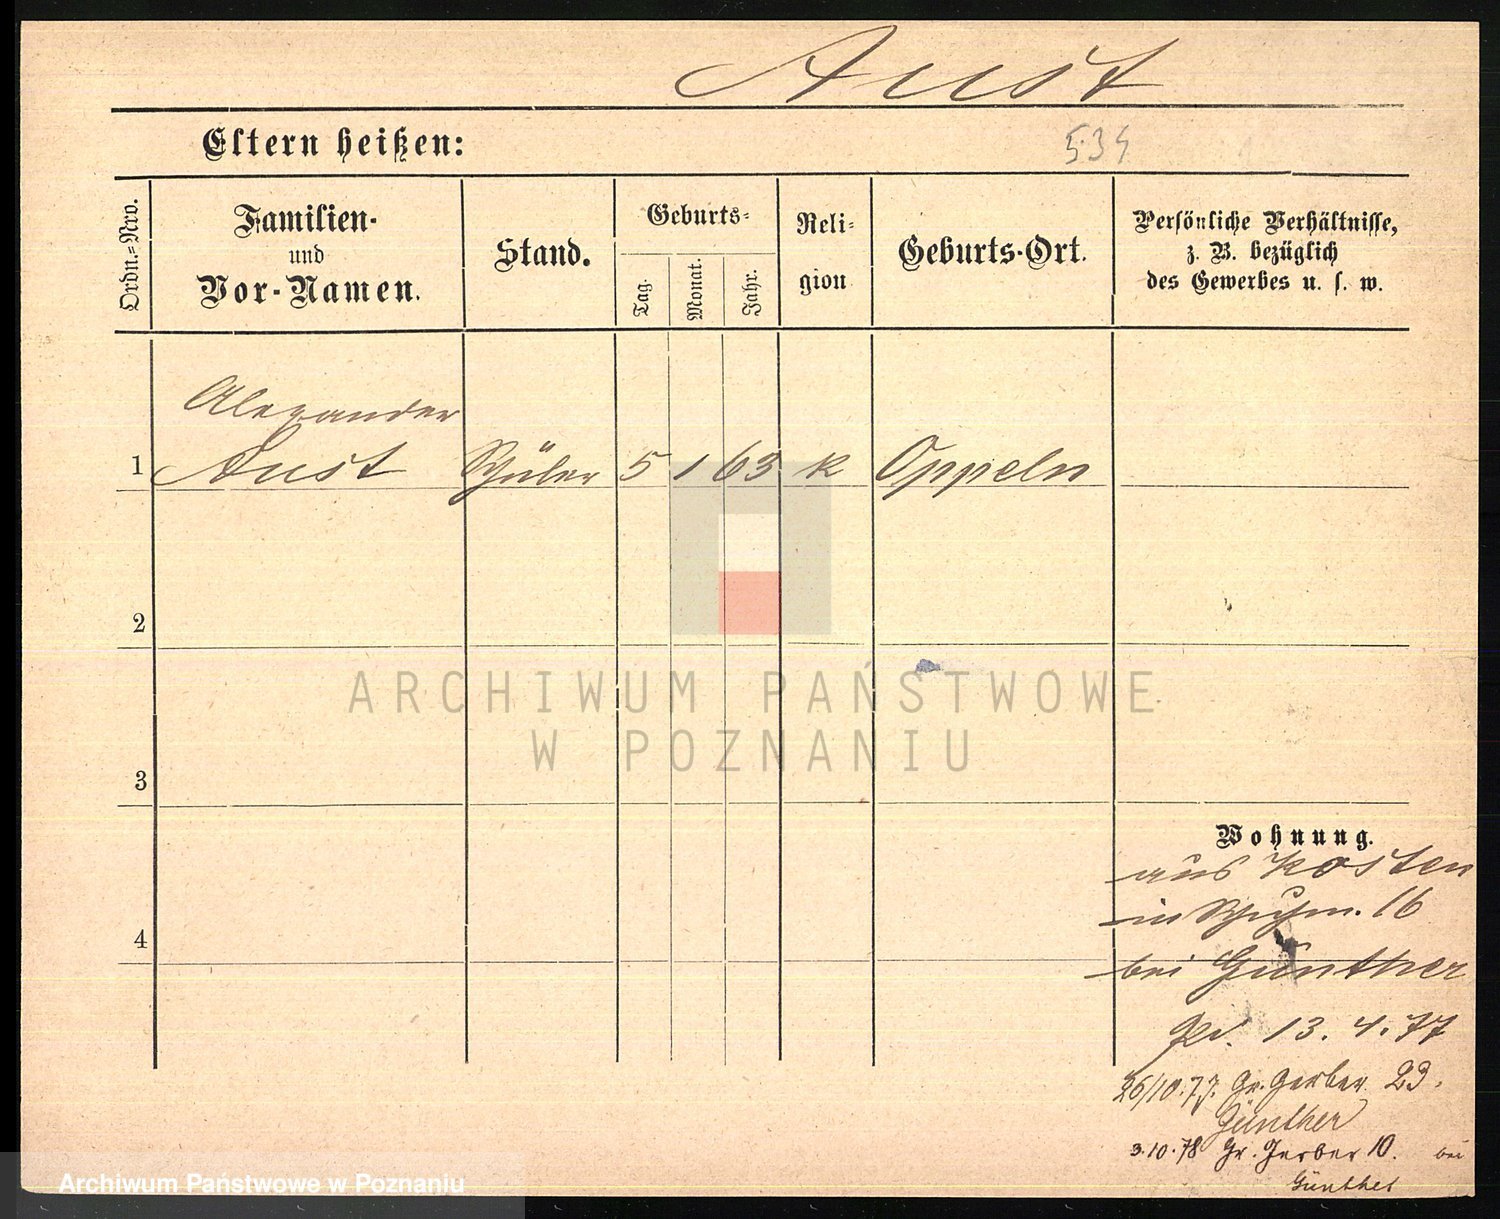 Aust
Eltern heißen:
534
Ordn.-Nro.
Familien-
und
Vor-Namen.
Stand.
Geburts-
Tag.
Monat.
Jahr.
Reli-
gion
Geburts-Ort.
Persönliche Verhältnisse,
z. B. bezüglich
des Gewerbes u. s. w.
Alexander
1 Aust Schüler 5 1 63 k Oppeln
2
3
4
Wohnung.
aus Kosten
in Schuhm. 16
bei Günther
13. 4. 77
26/10.77. Gr. Gerber 23.
Günther
3.10.78 Gr. Gerber 10. bei
Günther
ARCHIWUM PAŃSTWOWE
W POZNANIU
Archiwum Państwowe w Poznaniu